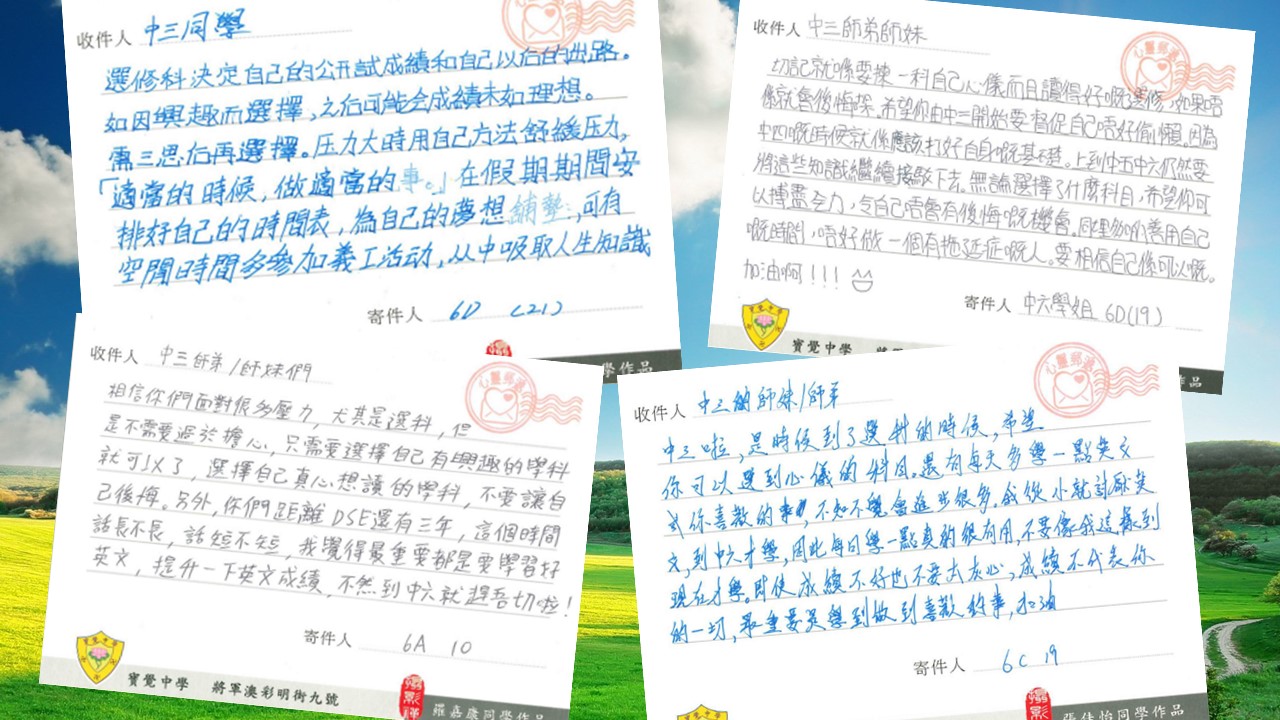 收件人 中三同學
選修科決定自己的公开試成績和自己以后的出路。
如因興趣而選擇，之后可能会成績未如理想。
需三思后再選擇。压力大時用自己方法舒緩压力，
「適當的時候，做適當的事。」在假期期間安
排好自己的時間表，為自己的夢想鋪墊，可有
空閒時間多參加義工活动，从中吸取人生知識
寄件人 6D (21)
學作品
收件人 中三師弟師妹
切記就係要揀一科自己心儀而且讀得好嘅選修，如果唔
係就會後悔㗎。希望你由中三開始要督促自己唔好偷懶。因為
中四嘅時候就係應該打好自身嘅基礎。上到中五中六仍然要
將這些知識繼續接駁下去。無論選擇了什麼科目，希望你可
以搏盡全力，令自己唔會有後悔嘅機會。同埋多啲善用自己
嘅時間，唔好做一個有拖延症嘅人。要相信自己係可以嘅。
加油啊！！！
寄件人 中六學姐 6D(19)
寶覺中學
作品
收件人 中三師弟/師妹們
心靈郵遞
相信你們面對很多壓力，尤其是選科，但
是不需要過於擔心，只需要選擇自己有興趣的學科
就可以了，選擇自己真心想讀的學科，不要讓自
己後悔。另外，你們距離DSE還有三年，這個時間
話長不長，話短不短，我覺得最重要都是要學習好
英文，提升一下英文成績，不然到中六就趕吾切啦！
寄件人 6A 10
寶覺中學 將軍澳彩明街九號
羅嘉康同學作品
收件人 中三的師妹/師弟
心靈郵遞
中三啦，是時候到了選科的時候，希望
你可以選到心儀的科目。還有每天多學一點英文
或你喜歡的事，不知不覺會進步很多。我從小就討厭英
文，到中六才學，因此每日學一點真的很有用，不要像我這樣到
現在才學。即使成績不好也不要太灰心，成績不代表你
的一切，最重要是想到做到喜歡的事，加油
寄件人 6C 19
張佳怡同學作品